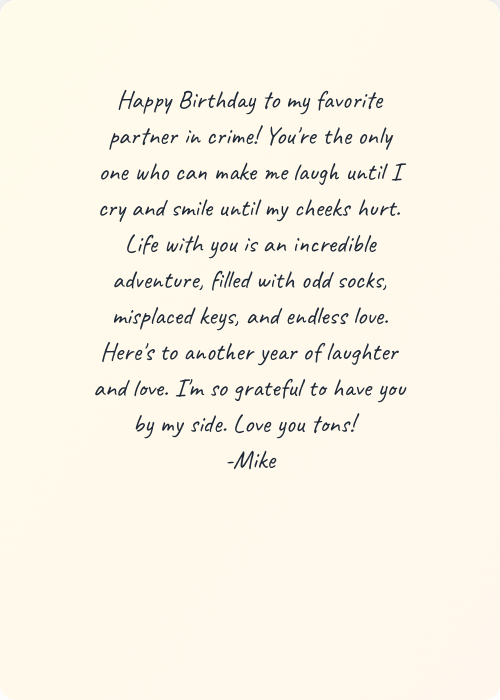 Happy Birthday to my favorite
partner in crime! You're the only
one who can make me laugh until I
cry and smile until my cheeks hurt.
Life with you is an incredible
adventure, filled with odd socks,
misplaced keys, and endless love.
Here's to another year of laughter
and love. I'm so grateful to have you
by my side. Love you tons!
-Mike